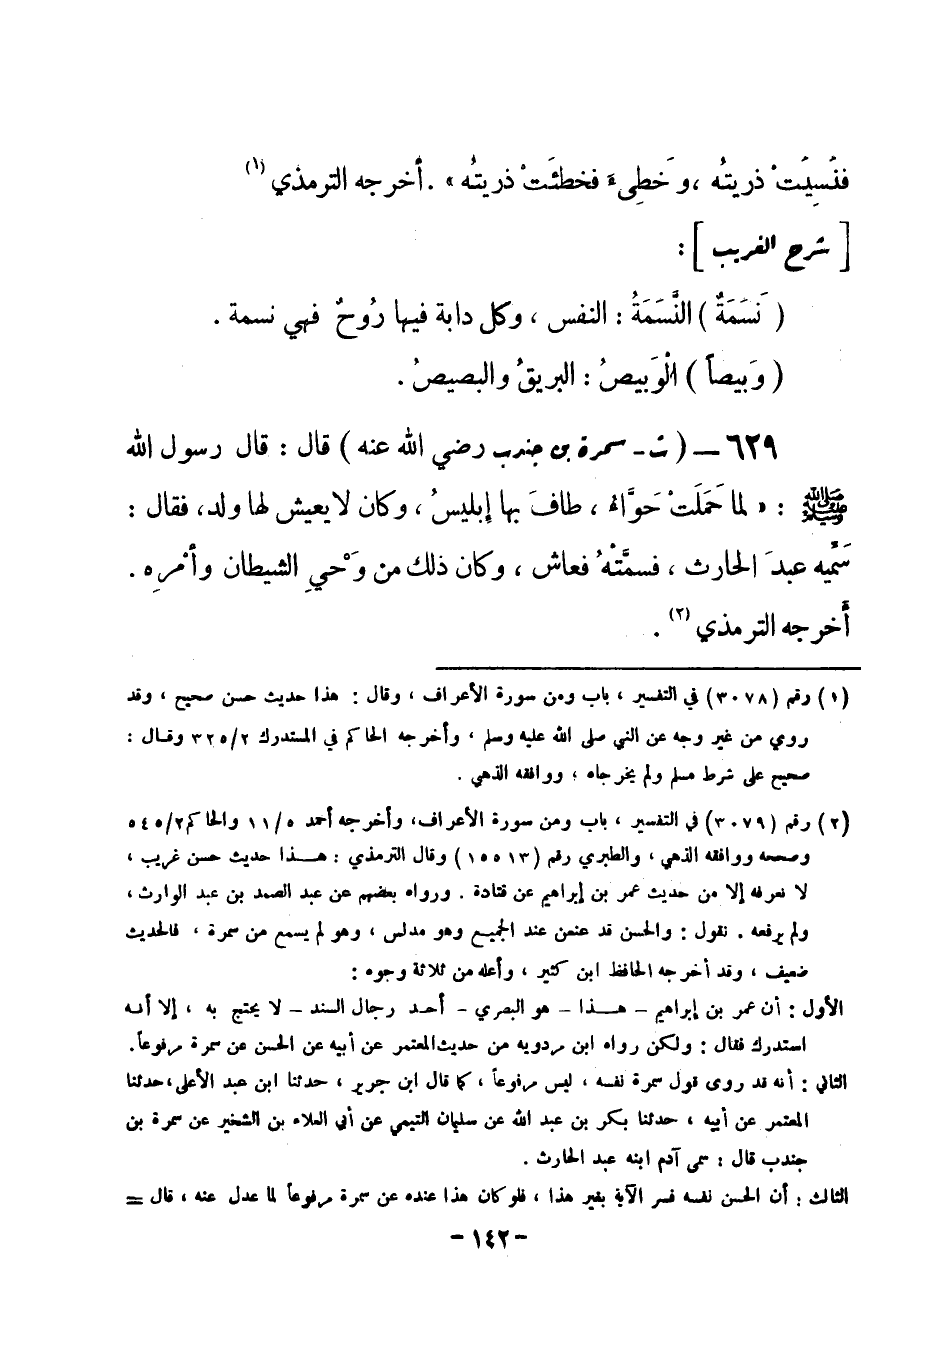 فنُسِيَتْ ذريتُه ، وَخَطِىءَ فخطئَتْ ذريتُه » . أخرجه الترمذي (١)
[ شرح الغريب ] :
( نَسَمَةٌ ) النَّسَمَةُ : النفس ، وكل دابة فيها رُوحٌ فهي نسمة .
( وَبيصاً ) الْوَبيصُ : البريقُ والبصيصُ .
٦٢٩ – ( ت - سمرة بن جندب رضي الله عنه ) قال : قال رسول الله
ﷺ : « لما حَمَلَتْ حَوَّاءُ ، طافَ بها إبليسُ ، وكان لا يعيش لها ولد ، فقال :
سَمِّيه عبدَ الحارث ، فسمَّتْهُ فعاش ، وكان ذلك من وَحْيِ الشيطان وأمْرِه .
أخرجه الترمذي (٢) .
(١) رقم (٣٠٧٨) في التفسير ، باب ومن سورة الأعراف ، وقال : هذا حديث حسن صحيح ، وقد
روي من غير وجه عن النبي صلى الله عليه وسلم ، وأخرجه الحاكم في المستدرك ٣٢٥/٢ وقال :
صحيح على شرط مسلم ولم يخرجاه ، ووافقه الذهبي .
(٢) رقم (٣٠٧٩) في التفسير ، باب ومن سورة الأعراف ، وأخرجه أحمد ١١/٥ والحاكم ٥٤٥/٢
وصححه ووافقه الذهبي ، والطبري رقم (١٥٥١٣) وقال الترمذي : هـذا حديث حسن غريب ،
لا نعرفه إلا من حديث عمر بن إبراهيم عن قتادة . ورواه بعضهم عن عبد الصمد بن عبد الوارث ،
ولم يرفعه . نقول : والحسن قد عنعن عند الجميع وهو مدلس ، وهو لم يسمع من سمرة ، فالحديث
ضعيف ، وقد أخرجه الحافظ ابن كثير ، وأعله من ثلاثة وجوه :
الأول : أن عمر بن إبراهيم – هـذا – هو البصري – أحد رجال السند – لا يحتج به ، إلا أنه
استدرك فقال : ولكن رواه ابن مردويه من حديث المعتمر عن أبيه عن الحسن عن سمرة مرفوعاً .
الثاني : أنه قد روى قول سمرة نفسه ، ليس مرفوعاً ، كما قال ابن جرير ، حدثنا ابن عبد الأعلى ، حدثنا
المعتمر عن أبيه ، حدثنا بكر بن عبد الله عن سليمان التيمي عن أبي العلاء بن الشخير عن سمرة بن
جندب قال : سمى آدم ابنه عبد الحارث .
الثالث : أن الحسن نفسه فسر الآية بغير هذا ، فلو كان هذا عنده عن سمرة مرفوعاً لما عدل عنه ، قال =
– ١٤٢ –